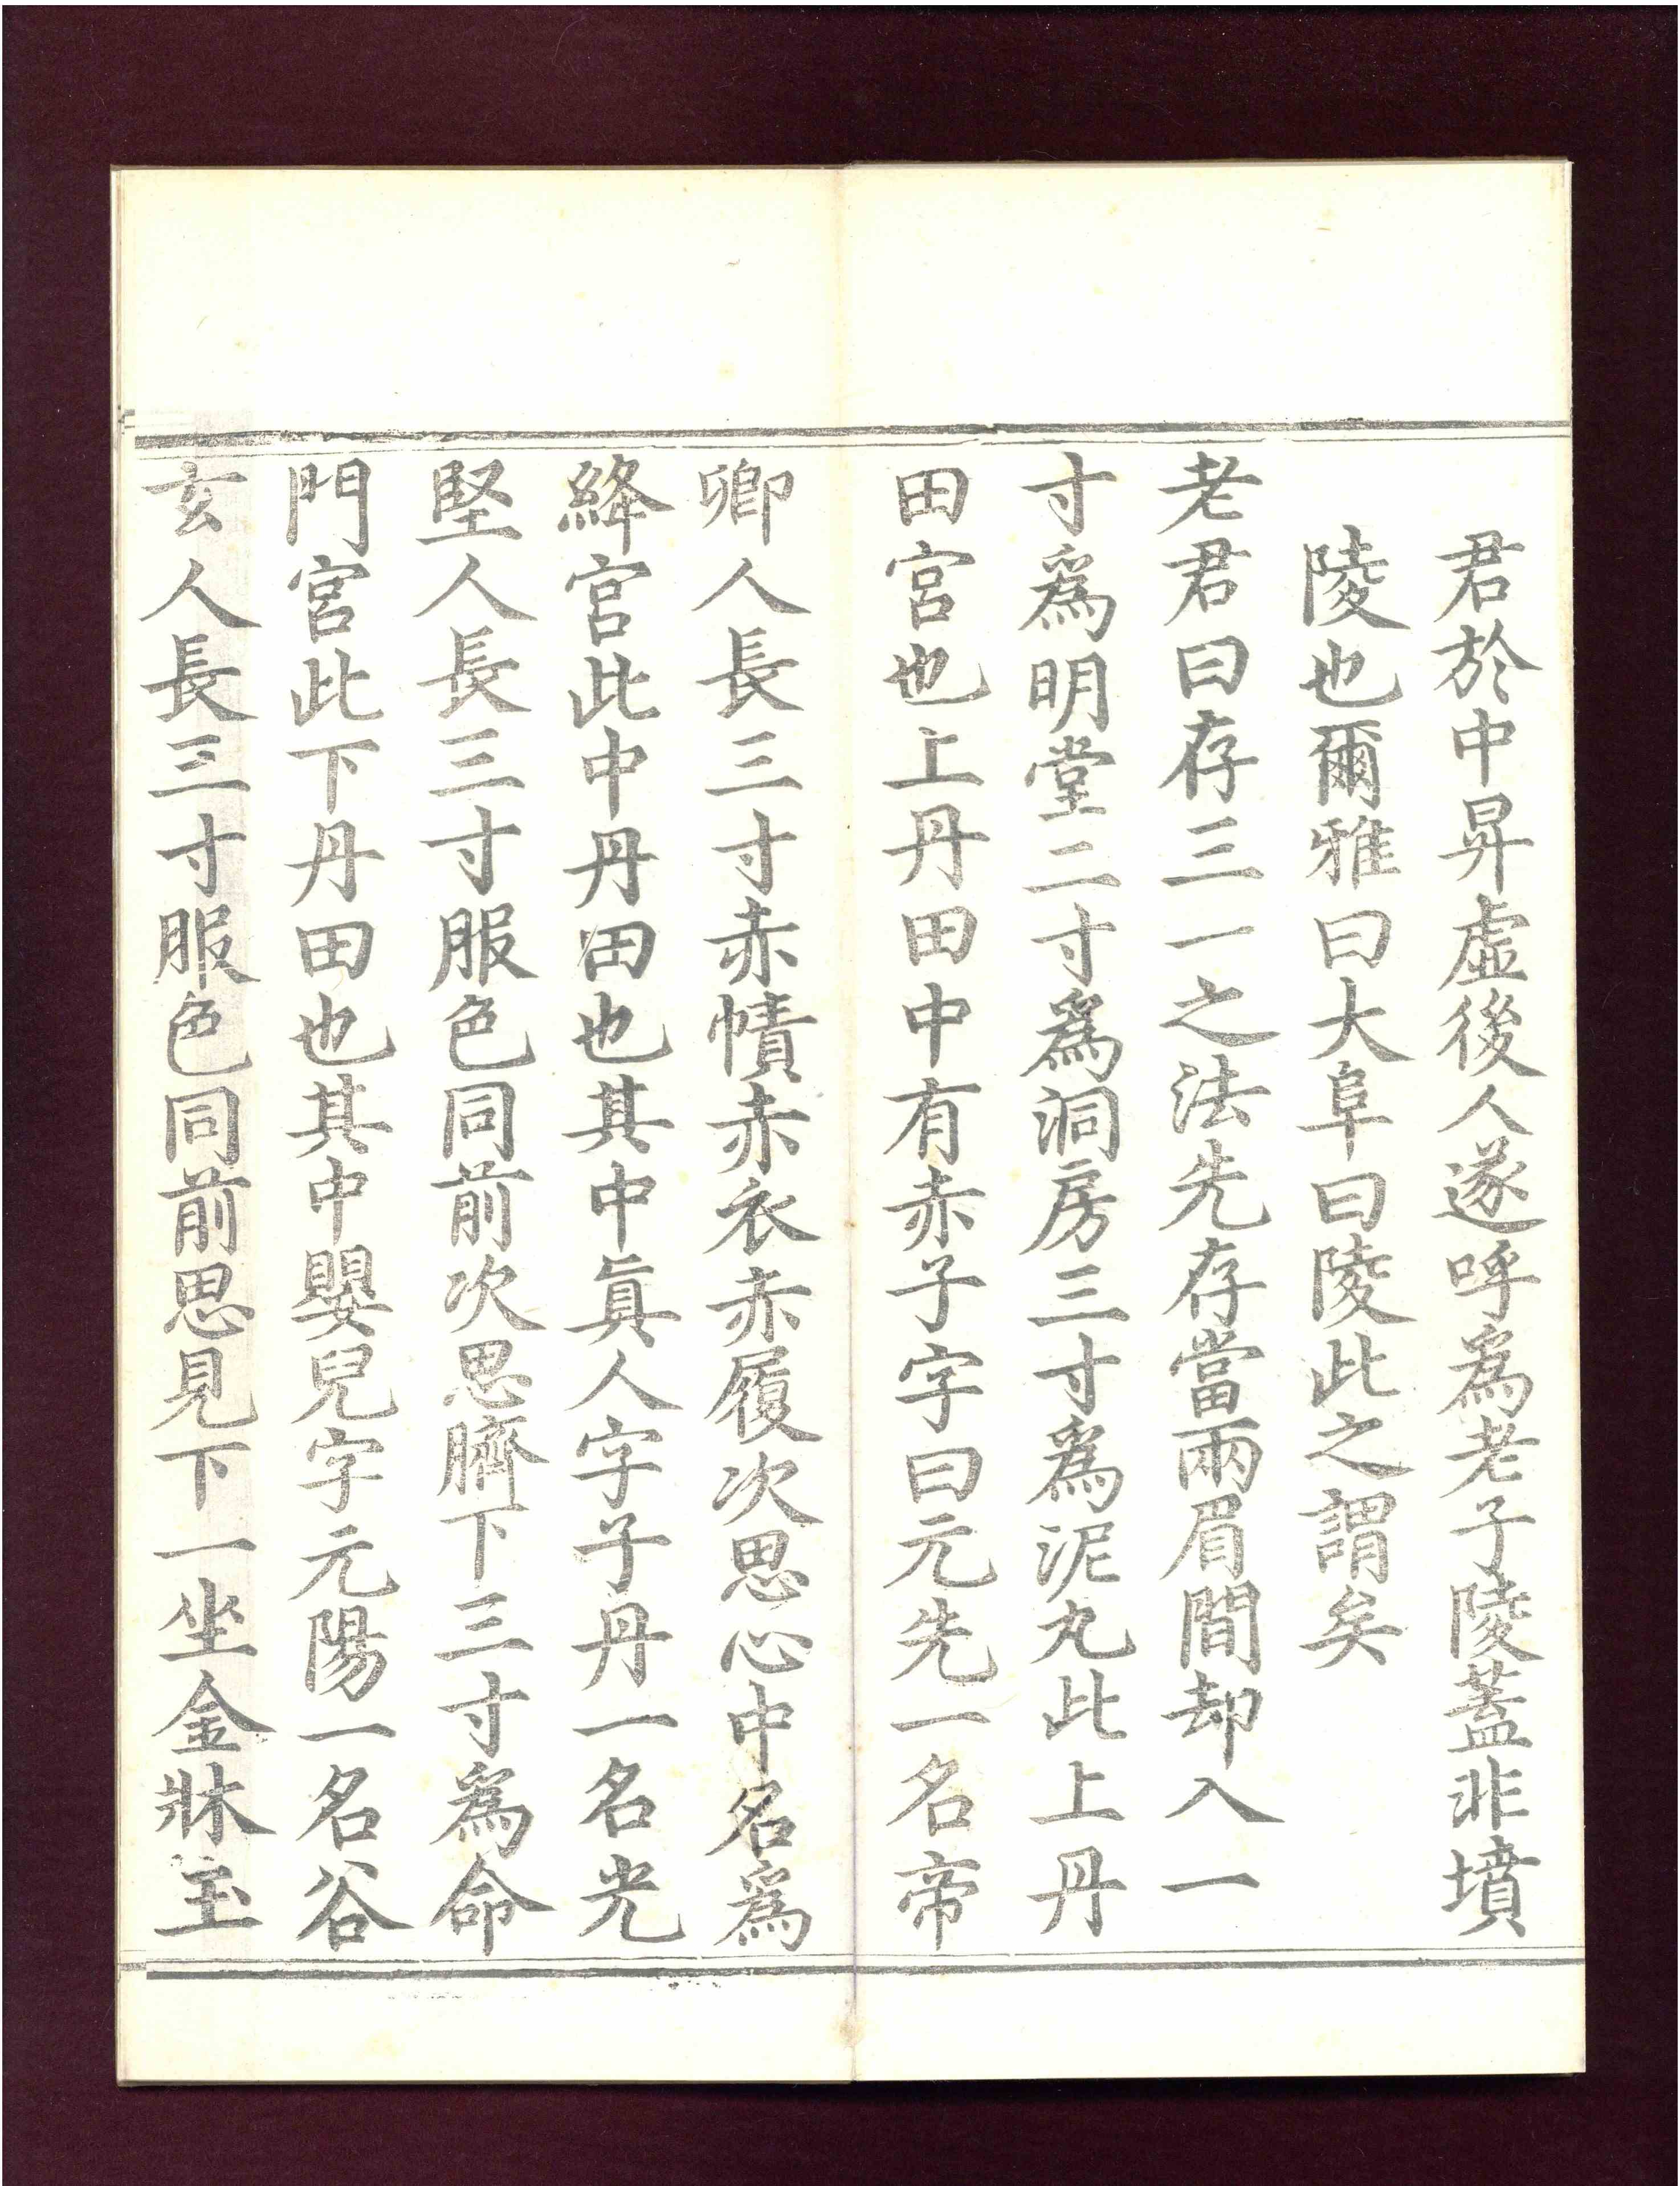 君於中昇虛後人遂呼爲老子陵蓋非墳
陵也爾雅曰大阜曰陵此之謂矣
老君曰存三一之法先存當兩眉間却入一
寸爲明堂二寸爲洞房三寸爲泥丸此上丹
田宮也上丹田中有赤子字曰元先一名帝
卿人長三寸赤幘赤衣赤履次思心中名爲
絳宮此中丹田也其中眞人字子丹一名光
堅人長三寸服色同前次思臍下三寸爲命
門宮此下丹田也其中嬰兒字元陽一名谷
玄人長三寸服色同前思見下一坐金牀玉